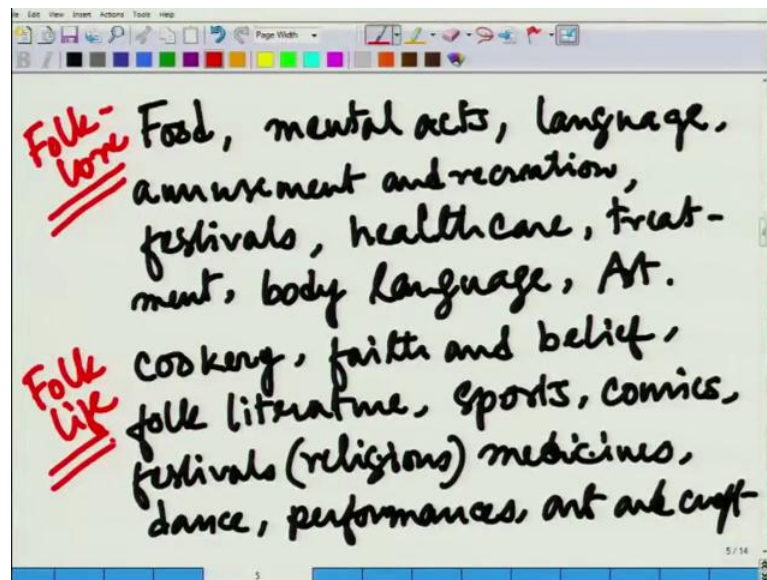 File Edit View Insert Actions Tools Help
Page Width
Folk-
lore
Food, mental acts, language,
amusement and recreation,
festivals, healthcare, treat-
ment, body language, Art.
Folk
life
cookery, faith and belief,
folk literature, sports, comics,
festivals (religious) medicines,
dance, performances, art and craft
5/14
5